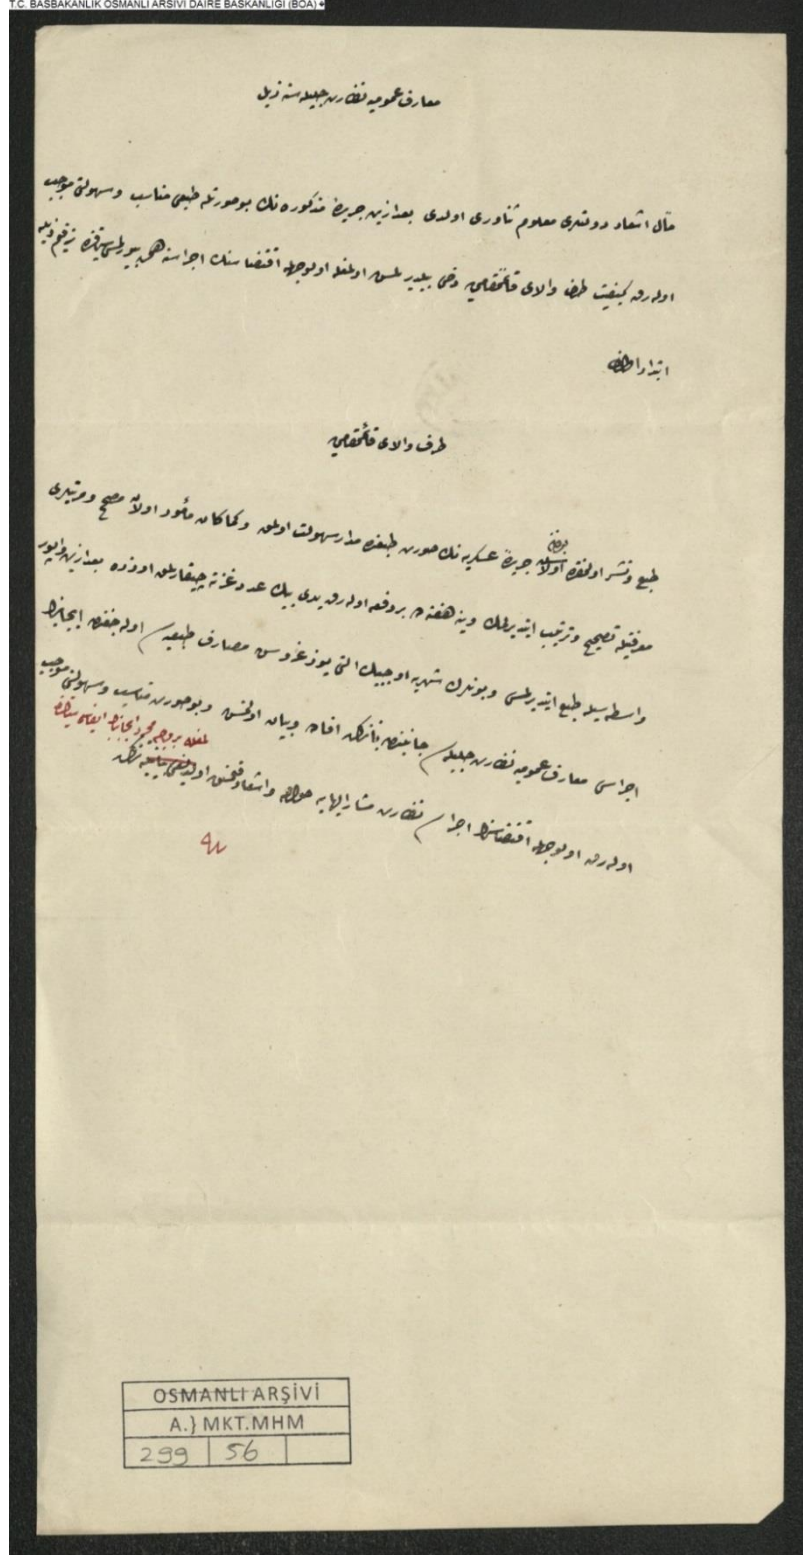 T.C. BAŞBAKANLIK OSMANLI ARŞİVİ DAİRE BAŞKANLIĞI (BOA)
معارف عمومیه نظارت جلیله سنه ذیل
مآل اشعار دولتلری معلوم ثناوری اولدی بعد ازین جریدۀ مذکوره نك بو صورتله طبعی مناسب و سهولتی موجب
اوله رق کیفیت طرف والای قائممقامی یه دخی بیلدیرلمش اولمغله اولوجهله اقتضاسنك اجراسنه همت بیورملری سیاقنده
ابتدا
طرف والای قائممقامی یه
طبع و نشر اولنمقده اولان جریدۀ عسکریه نك صورت طبعنده مدار سهولت اولمق و کماکان مأمور اولان مصحح و مرتبلری
معرفتیله تصحیح و ترتیب ایتدیرلمك وینه هفته ده بر دفعه اوله رق یدی بیك عدد غزته چیقارلمق اوزره بعد ازین واپور
واسطه سیله طبع ایتدیرلمسی و بونلرك شهریه اوچ بیك التی یوز غروش مصارف طبعیه اوله جغندن ایجابنك
اجراسی معارف عمومیه نظارت جلیله سی جانبندن افاده و بیان اولنمش و بو صورت مناسب و سهولتی موجب
اوله رق اولوجهله اقتضاسنك اجراسی نظارت مشار الیهایه حواله و اشعار قلنمش اولدیغی
OSMANLI ARŞİVİ
A.} MKT.MHM
299 56